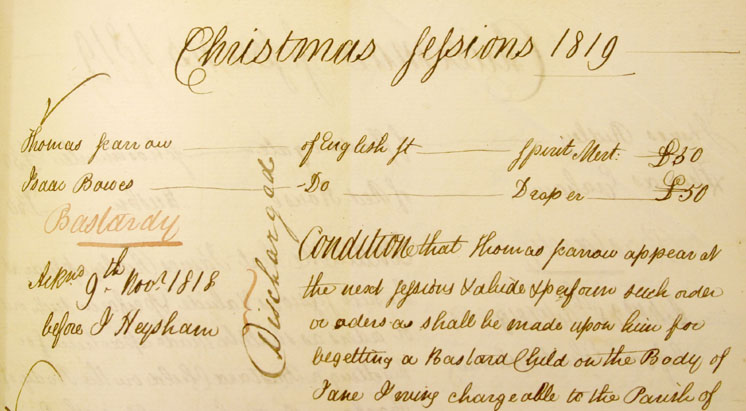 Christmas Sessions 1819
Thomas Jarrow of English St Spirit Mert: £50
Isaac Bowes -Do Draper £50
Bastardy
Acknd 9th Novr 1818
before J Heysham
Discharged
Condition that Thomas Jarrow appear at
the next Sessions & abide & perform such order
or oders as shall be made upon him for
begetting a Bastard Child on the Body of
Jane Irving chargeable to the Parish of